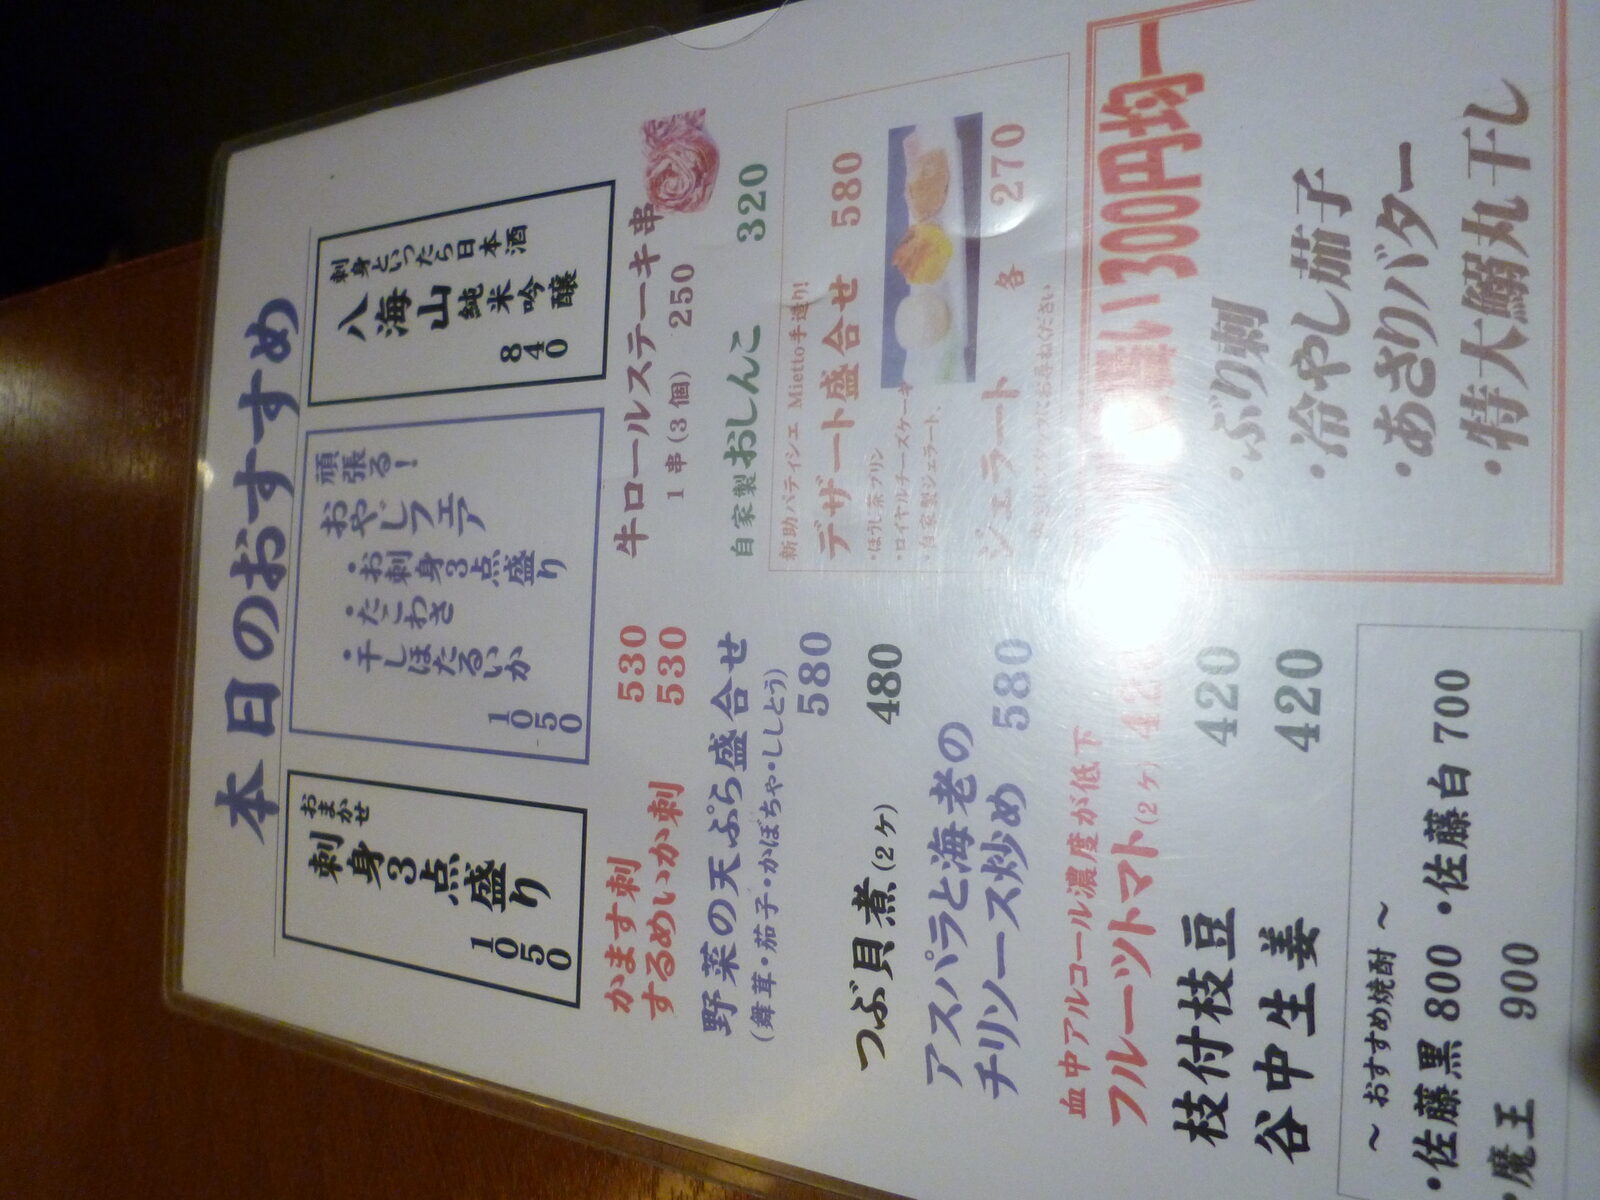 本日のおすすめ
おまかせ
刺身3点盛り
1050
頑張る!
おやじフェア
・お刺身3点盛り
・たこわさ
・干しほたるいか
1050
刺身といったら日本酒
八海山
純米吟醸
840
かます刺 530
するめいか刺 530
野菜の天ぷら盛合せ
(舞茸・茄子・かぼちゃ・ししとう)
580
つぶ貝煮(2ケ) 480
アスパラと海老の
チリソース炒め 580
血中アルコール濃度が低下
フルーツトマト(2ケ) 420
枝付枝豆 420
谷中生姜 420
～おすすめ焼酎～
・佐藤黒 800 ・佐藤白 700
・魔王 900
牛ロールステーキ串
1串(3個) 250
自家製おしんこ 320
新助パティシエ Mietto手造り!
デザート盛合せ 580
・ほうじ茶プリン
・ロイヤルチーズケーキ
・自家製ジェラート
ジェラート 各 270
お尋ねください
300円均一
・ぶり刺
・冷やし茄子
・あさりバター
・特大鰯丸干し